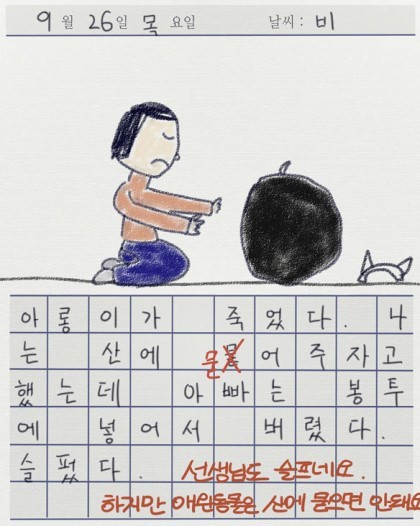 9월 26일 목요일 날씨: 비
아롱이가 죽었다. 나
는 산에 문물어 주자고
했는데 아빠는 봉투
에 넣어서 버렸다.
슬펐다. 선생님도 슬프네요.
하지만 애완동물은 산에 물으면 안돼요